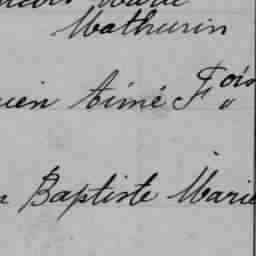 Marie
Mathurin
ien Aimé Fois "
Baptiste Marie